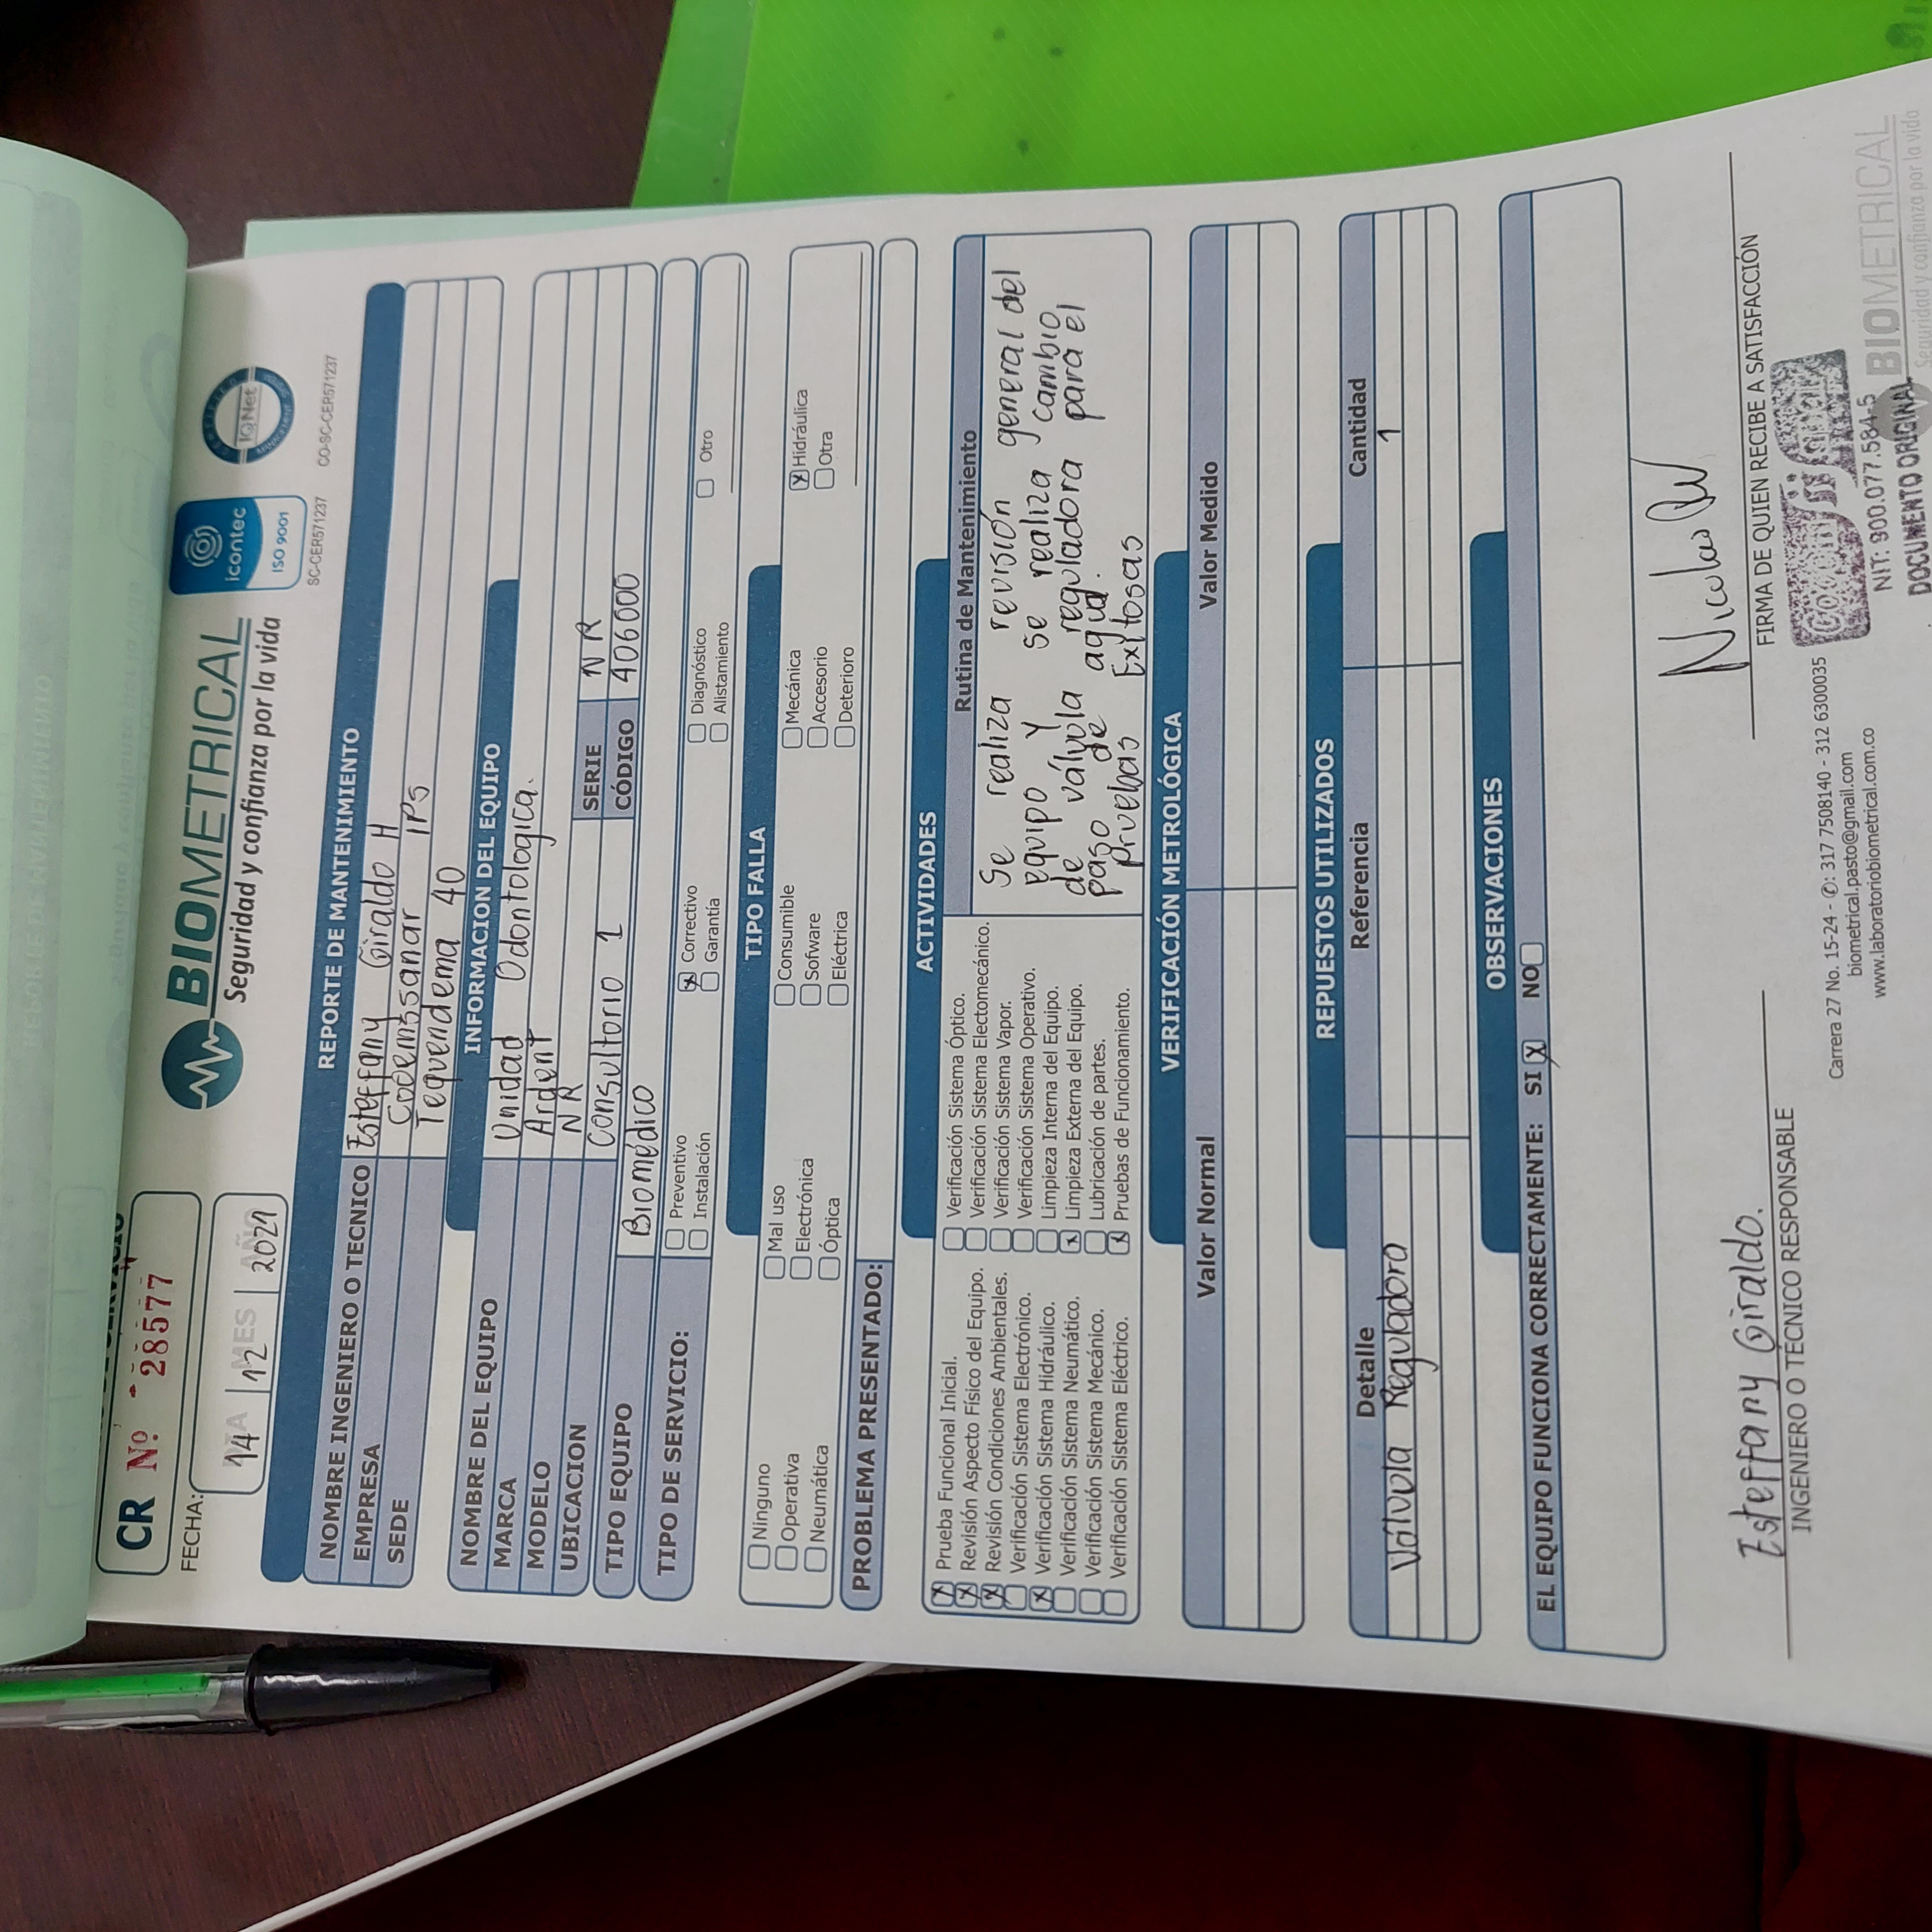 CR Nº 28577
FECHA:
DIA MES AÑO
14 12 2021
BIOMETRICAL
Seguridad y confianza por la vida
icontec
ISO 9001
SC-CER571237
IQNet
CO-SC-CER571237
REPORTE DE MANTENIMIENTO
NOMBRE INGENIERO O TECNICO Esteffany Giraldo H
EMPRESA Codemssanar IPS
SEDE Tequendema 40
INFORMACION DEL EQUIPO
NOMBRE DEL EQUIPO Unidad Odontologica.
MARCA Ardent
MODELO NR SERIE NR
UBICACION Consultorio 1 CÓDIGO 406000
TIPO EQUIPO Biomédico
TIPO DE SERVICIO:
Preventivo Correctivo Diagnóstico Otro
Instalación Garantía Alistamiento
TIPO FALLA
Ninguno Mal uso Consumible Mecánica Hidráulica
Operativa Electrónica Sofware Accesorio Otra
Neumática Óptica Eléctrica Deterioro
PROBLEMA PRESENTADO:
ACTIVIDADES
Prueba Funcional Inicial.
Revisión Aspecto Físico del Equipo.
Revisión Condiciones Ambientales.
Verificación Sistema Electrónico.
Verificación Sistema Hidráulico.
Verificación Sistema Neumático.
Verificación Sistema Mecánico.
Verificación Sistema Eléctrico.
Verificación Sistema Óptico.
Verificación Sistema Electomecánico.
Verificación Sistema Vapor.
Verificación Sistema Operativo.
Limpieza Interna del Equipo.
Limpieza Externa del Equipo.
Lubricación de partes.
Pruebas de Funcionamiento.
Rutina de Mantenimiento
Se realiza revisión general del
equipo y se realiza cambio
de válvula reguladora para el
paso de agua.
Pruebas Exitosas
VERIFICACIÓN METROLÓGICA
Valor Normal Valor Medido
REPUESTOS UTILIZADOS
Detalle Referencia Cantidad
Válvula Reguladora 1
OBSERVACIONES
EL EQUIPO FUNCIONA CORRECTAMENTE: SI X NO
Esteffany Giraldo.
INGENIERO O TÉCNICO RESPONSABLE
Nicolas
FIRMA DE QUIEN RECIBE A SATISFACCIÓN
Carrera 27 No. 15-24 - ✆: 317 7508140 - 312 6300035
biometrical.pasto@gmail.com
www.laboratoriobiometrical.com.co
NIT: 900.077.584-5
DOCUMENTO ORIGINAL
BIOMETRICAL
Seguridad y confianza por la vida